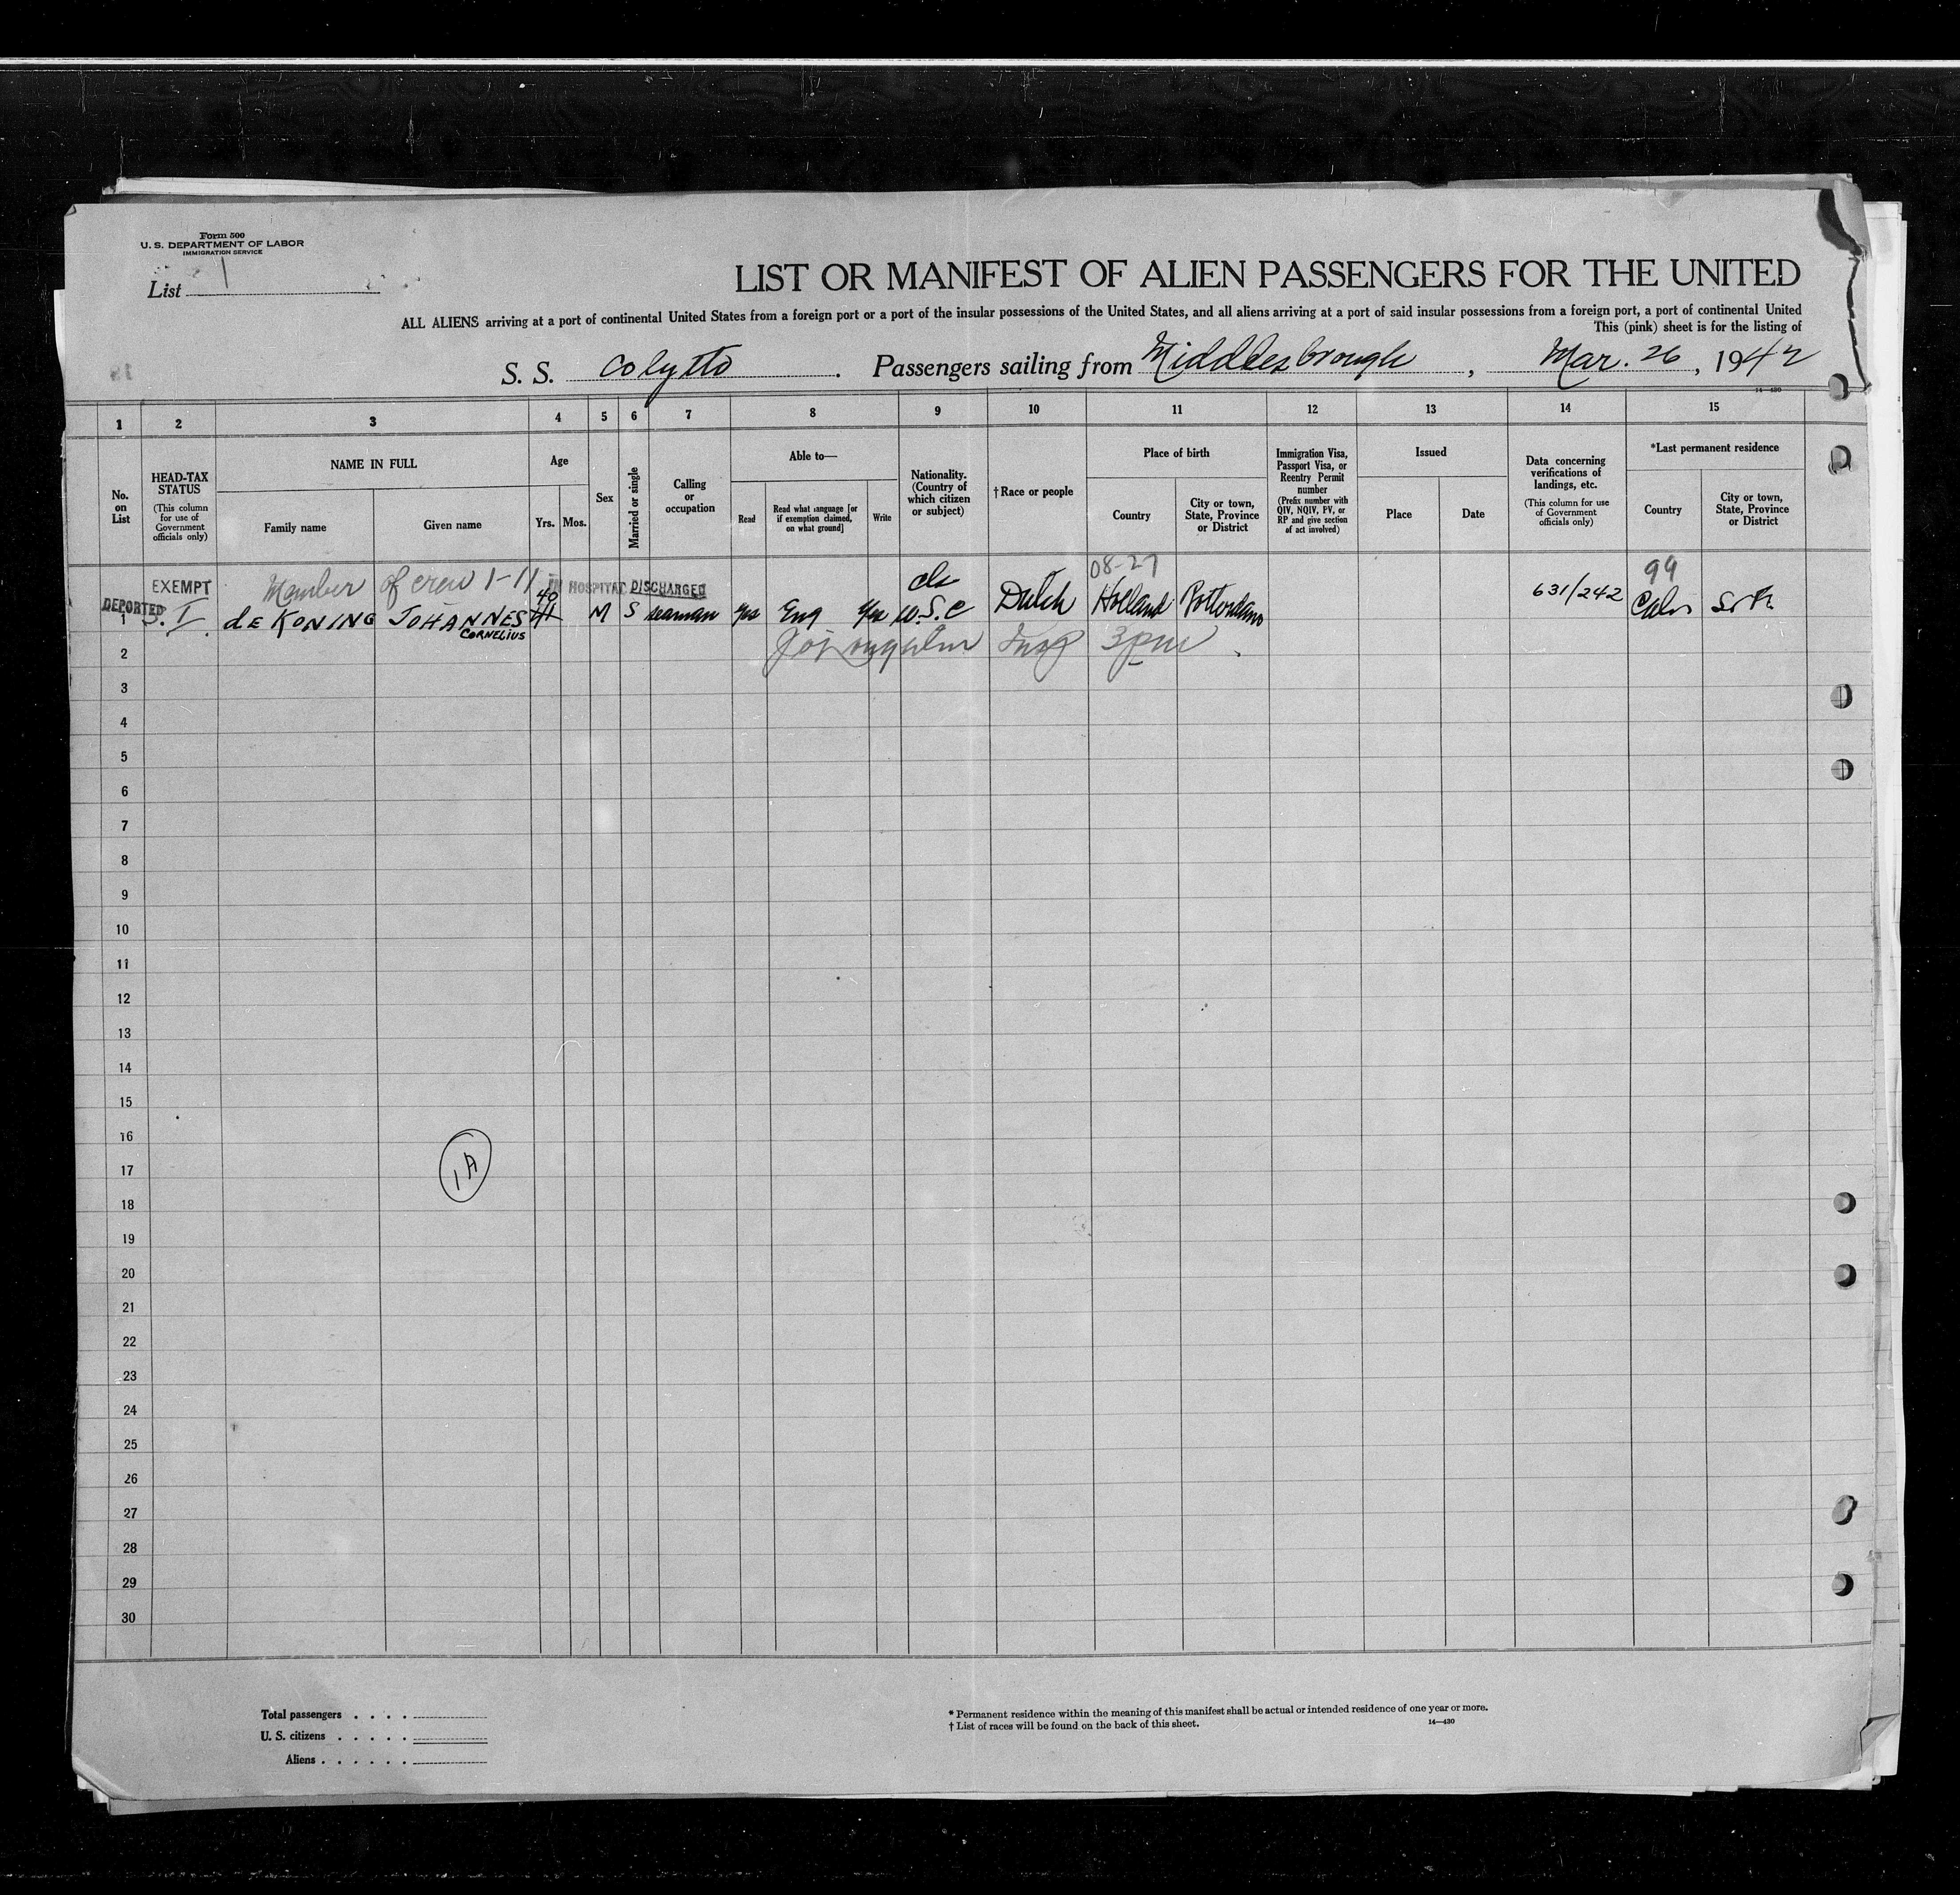 Form 500
U. S. DEPARTMENT OF LABOR
IMMIGRATION SERVICE
List 1
LIST OR MANIFEST OF ALIEN PASSENGERS FOR THE UNITED
ALL ALIENS arriving at a port of continental United States from a foreign port or a port of the insular possessions of the United States, and all aliens arriving at a port of said insular possessions from a foreign port, a port of continental United
This (pink) sheet is for the listing of
S. S. Colytto. Passengers sailing from Middlesbrough, Mar. 26, 1942
14—430
1 2 3 4 5 6 7 8 9 10 11 12 13 14 15
No. on List
HEAD-TAX STATUS
(This column for use of Government officials only)
NAME IN FULL
Family name
Given name
Age
Yrs.
Mos.
Sex
Married or single
Calling or occupation
Able to—
Read
Read what language [or if exemption claimed, on what ground]
Write
Nationality. (Country of which citizen or subject)
† Race or people
Place of birth
Country
City or town, State, Province or District
Immigration Visa, Passport Visa, or Reentry Permit number
(Prefix number with QIV, NQIV, PV, or RP and give section of act involved)
Issued
Place
Date
Data concerning verifications of landings, etc.
(This column for use of Government officials only)
*Last permanent residence
Country
City or town, State, Province or District
EXEMPT Member of crew 1-11 40 IN HOSPITAL DISCHARGED 08-27 631/242 99
DEPORTED
1 S. I. de KONING JOHANNES 41 M S seaman yes Eng yes Dutch Holland Rotterdam
CORNELIUS
2 3pm
3
4
5
6
7
8
9
10
11
12
13
14
15
16
17
18
19
20
21
22
23
24
25
26
27
28
29
30
1A
Total passengers . . . .
U. S. citizens . . . . .
Aliens . . . . . .
* Permanent residence within the meaning of this manifest shall be actual or intended residence of one year or more.
† List of races will be found on the back of this sheet.
14—430